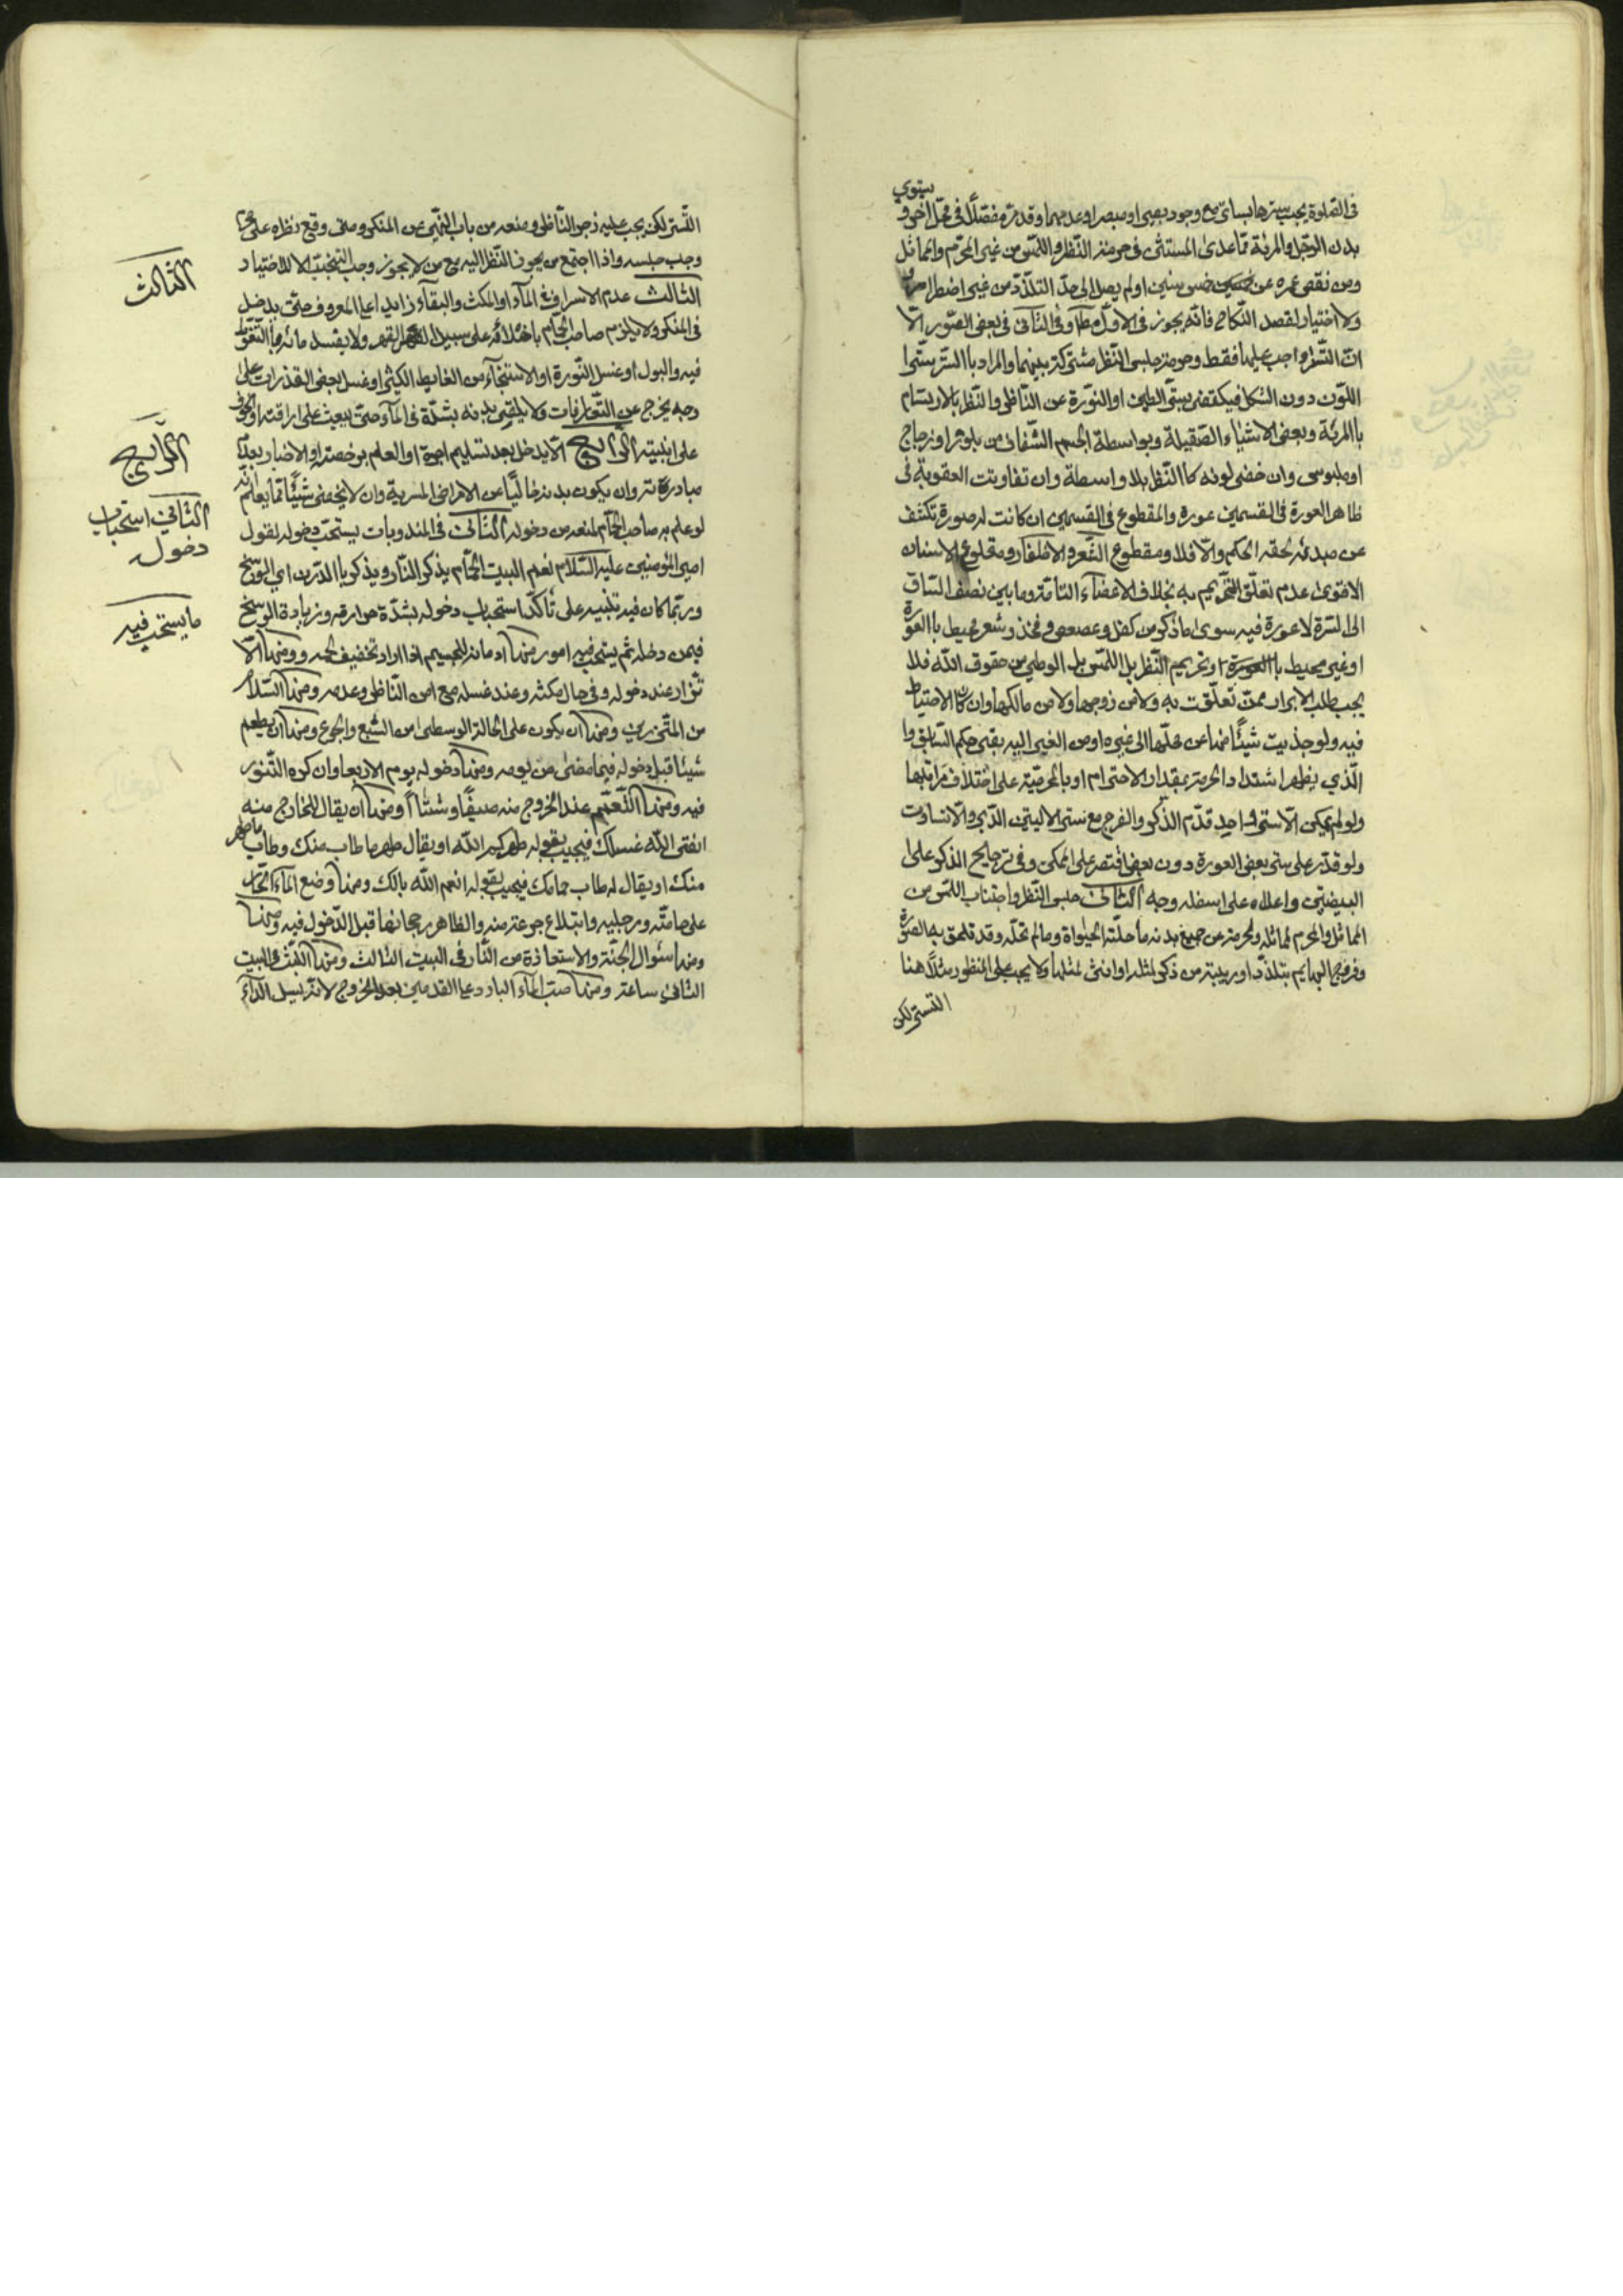 في الصلوة يجب سترها بساتر مع وجود بصير او مبصر او عدمهما وقد مرّ مفصّلاً في محلّ اخر و يستوي
بدن الرجل والمرئة ممّا عدى المستثنى في حرمة النّظر واللّمس من غير المحرّم والمماثل
ومن نقص عمره عن خمس سنين او لم يصل الى حدّ التلذّذ من غير اضطرار
ولا اختيار لقصد النّكاح فانّه يجوز في الاوّل وفي الثّاني في بعض الصّور الّا
انّ التّستّر واجب عليها فقط وحرمة حبس النّظر مشتركة بينهما والمراد باالستر ستر
اللّون دون الشكل فيكتفى بستر الطين او النّورة عن النّاظر والنّظر بالارتسام
باالمرئة وبعض الاشياء الصّقيلة وبواسطة الجسم الشّفاف من بلور او زجاج
او ملبوس وان خفى لونه كاالنّظر بلا واسطة وان تفاوتت العقوبة في
ظاهر العورة في القسمين عورة والمقطوع في القسمين ان كانت له صورة تكشف
عن مبدئه لحقه الحكم والّا فلا ومقطوع الشّعر والاظفار ومقلوع الاسنان
الاقوى عدم تعلّق التّحريم به بخلاف الاعضاء التّامّة وما بين نصف السّاق
الى السّرة لا عورة فيه سوى ما ذكر من كفل وعصعص وفخذ وشعر محيط باالعورة
او غير محيط باالعورة وتحريم النّظر بل اللّمس بل الوطي من حقوق الله فلا
يجب طلب الابراء ممّن تعلّقت به ولا من زوجها ولا من مالكها وان كان الاحتياط
فيه ولو جذبت شيئًا منها عن محلّها الى غيره او من الغير اليه بقى حكم السّابق و
الّذي يظهر اشتداد الحرمة بمقدار الاحترام او باالحرميّة على اختلاف مراتبها
ولو لم يمكن الّا ستر واحد قدّم الذّكر والفرج مع ستر الاليتين الدّبر والّا تساوت
ولو قدّر على ستر بعض العورة دون بعض اقتصر على الممكن وفي ترجيح الذكر على
البيضتين واعلاه على اسفله وجه الثّاني حبس النّظر واجتناب اللّمس من
المماثل والمحرم لمماثله ولمحرمه عن جميع بدنه ما حلّته الحيواة وما لم تحلّه وقد تلحق بها الصّورة
وفروج البهايم بتلذّذ او ريبة من ذكر لمثله او انثى لمثلها ولا يجب على المنظور مثلًا هنا
التستر لكن
التّستر لكن يجب عليه زجر النّاظر ومنعه من باب النّهي عن المنكر ومتى وقع نظره على محرّم
وجب حبسه واذا اجتمع من يجوز النّظر اليه مع من لا يجوز وجب التّجنّب الا للاختيار
الثّالث عدم الاسراف في المآء او المكث والبقآء زايدا على المعروف حتّى يدخل
في المنكر ولا يلزم صاحب الحمّام باخلائه على سبيل القهر ولا يفسد مائه باالتّغوّط
فيه والبول او غسل النّورة او الاستنجآء من الغايط الكثير او غسل بعض القذرات على
وجه يخرج عن التّعارفات ولا يلقى بدنه بشدّة في المآء حتّى يبعث على اراقته او الخوف
على ابنيته الرّابع الّا يدخل بعد تسليم اجرة او العلم برخصته او الاخبار بعد
مبادرته وان يكون بدنه خاليًا من الامراض المسرية وان لا يخفى شيئًا ممّا يعلم انّه
لو علم به صاحب الحمّام لمنعه من دخوله الثّاني في المندوبات يستحبّ دخوله لقول
امير المؤمنين عليه السّلام نعم البيت الحمّام يذكر النّار ويذهب باالدّرن اي الوسخ
وربّما كان فيه تنبيه على تأكّد استحباب دخوله بشدّة حرارته وزيادة الوسخ
فيمن دخله ثم يستحبّ فيه امور منها ادمانه للجسيم اذا اراد تخفيف لحمه ومنها الا
تّزار عند دخوله وفي حال مكثه وعند غسله مع امن النّاظر وعدمه ومنها السّلام
من المتّزرين ومنها ان يكون على الحالة الوسطى من الشّبع والجوع ومنها ان يطعم
شيئا قبل دخوله فيما مضى من يومه ومنها دخوله يوم الاربعا وان كره التّنور
فيه ومنها التّعمّم عند الخروج منه صيفًا وشتآءً ومنها ان يقال للخارج منه
انقى الله غسلك فيجيب بقوله طهركم الله او يقال طهر ما طاب منك وطاب ما طهر
منك او يقال له طاب حمامك فيجيب بقوله انعم الله بالك ومنها وضع المآء الحارّ
على هامته ورجليه وابتلاع جرعة منه والظاهر رجحانها قبل الدّخول فيه ومنها
ومنها سؤال الجنّة والاستعاذة من النّار في البيت الثالث ومنها اللّبث في البيت
الثاني ساعة ومنها صبّ المآء البارد على القدمين بعد الخروج لانّه يسل الدّآء
الثالث
الرّابع
الثاني استحباب
دخول
ما يستحب فيه